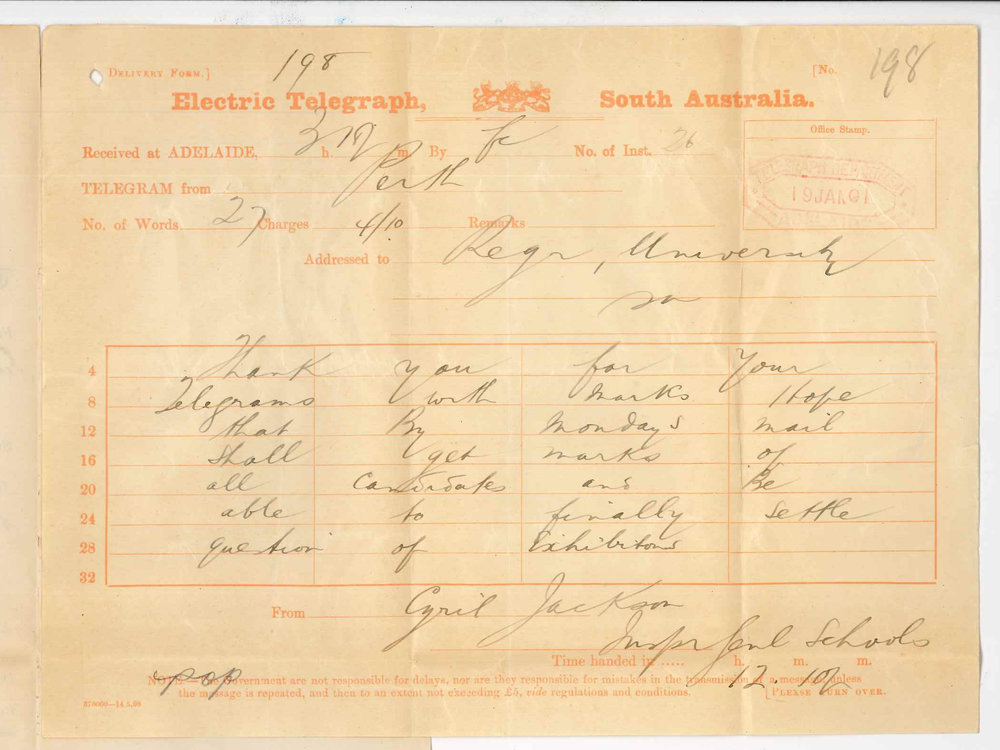 DELIVERY FORM.] 198 [No. 198
Electric Telegraph, South Australia.
Office Stamp.
Received at ADELAIDE, 3 h. 19 m. By No. of Inst. 26
TELEGRAM from Perth
19 JAN 01
No. of Words 27 Charges 4/10 Remarks
Addressed to Regr, University
4 Thank you for Your
8 Telegrams with Marks Hope
12 that By Mondays mail
16 Shall get marks of
20 all Candidates and Be
24 able to finally Settle
28 question of Exhibitions
32
From Cyril Jackson
Inspr Genl Schools
Time handed in ..... h. m. m.
12.
NOTE.—The Government are not responsible for delays, nor are they responsible for mistakes in the transmission of a message unless
the message is repeated, and then to an extent not exceeding £5, vide regulations and conditions. [PLEASE TURN OVER.